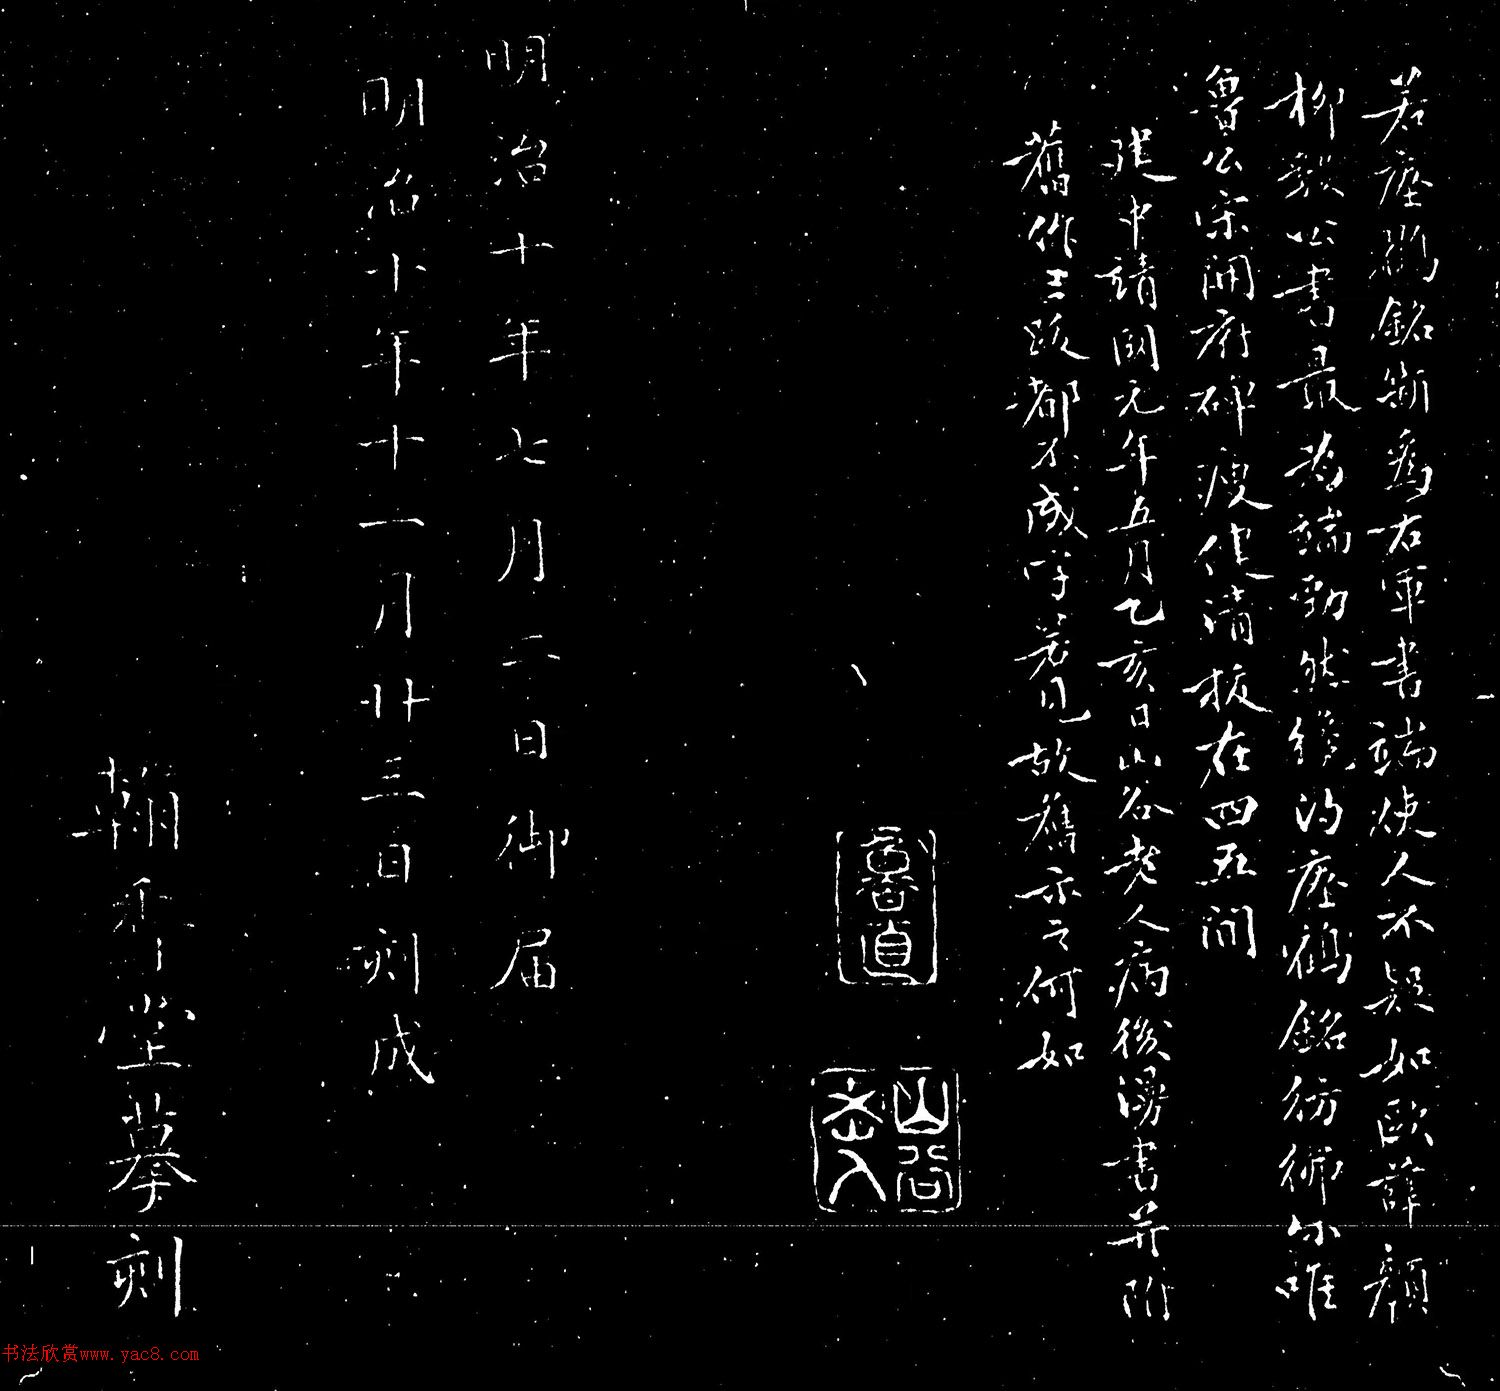 若瘞鶴銘斷為右軍書端使人不疑如歐薛顏
柳數公書最為端勁然纔得瘞鶴銘彷彿尔唯
魯公宋開府碑瘦健清拔在四五間
建中靖國元年五月乙亥日山谷老人病後漫書并附
舊作三跋都不成字若見故舊亦云何如
魯直
山谷老人
明治十年七月二日御届
明治十年十一月廿三日刻成
堂摹刻
书法欣赏www.yac8.com